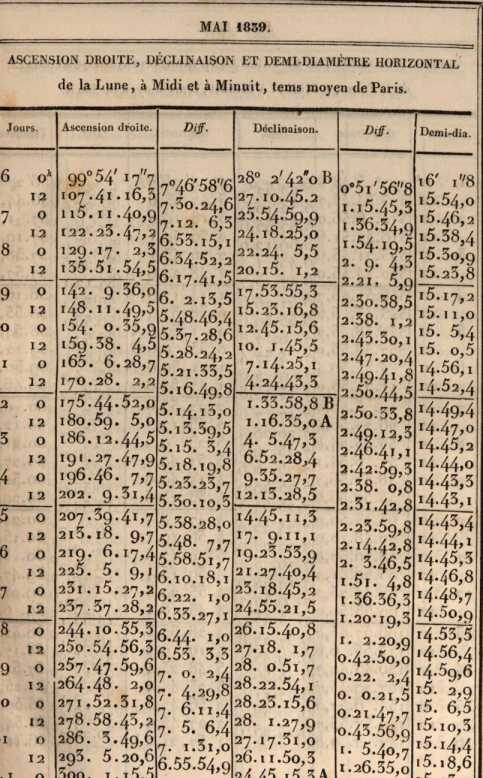 MAI 1839.
ASCENSION DROITE, DÉCLINAISON ET DEMI-DIAMÈTRE HORIZONTAL
de la Lune, à Midi et à Minuit, tems moyen de Paris.
Jours. Ascension droite. Diff. Déclinaison. Diff. Demi-dia.
6 0h 99°54′17″7 7°46′58″6 28° 2′42″0 B 0°51′56″8 16′ 1″8
12 107.41.16,3 7.30.24,6 27.10.45.2 1.15.45,3 15.54,0
7 0 115.11.40,9 7.12. 6,3 25.54.59,9 1.36.34,9 15.46,2
12 122.23.47,2 6.53.15,1 24.18.25,0 1.54.19,5 15.38,4
8 0 129.17. 2,3 6.34.52,2 22.24. 5,5 2. 9. 4,3 15.30,9
12 135.51.54,5 6.17.41,5 20.15. 1,2 2.21. 5,9 15.23,8
9 0 142. 9.36,0 6. 2.13,5 17.53.55,3 2.30.38,5 15.17,2
12 148.11.49,5 5.48.46,4 15.23.16,8 2.38. 1,2 15.11,0
0 0 154. 0.35,9 5.37.28,6 12.45.15,6 2.43.30,1 15. 5,4
12 159.38. 4,5 5.28.24,2 10. 1.45,5 2.47.20,4 15. 0,5
1 0 165. 6.28,7 5.21.33,5 7.14.25,1 2.49.41,8 14.56,1
12 170.28. 2,2 5.16.49,8 4.24.43,3 2.50.44,5 14.52,4
2 0 175.44.52,0 5.14.13,0 1.33.58,8 B 2.50.33,8 14.49,4
12 180.59. 5,0 5.13.39,5 1.16.35,0 A 2.49.12,3 14.47,0
3 0 186.12.44,5 5.15. 3,4 4. 5.47,3 2.46.41,1 14.45,2
12 191.27.47,9 5.18.19,8 6.52.28,4 2.42.59,3 14.44,0
4 0 196.46. 7,7 5.23.23,7 9.35.27,7 2.38. 0,8 14.43,3
12 202. 9.31,4 5.30.10,3 12.13.28,5 2.31.42,8 14.43,1
5 0 207.39.41,7 5.38.28,0 14.45.11,3 2.23.59,8 14.43,4
12 213.18. 9,7 5.48. 7,7 17. 9.11,1 2.14.42,8 14.44,1
6 0 219. 6.17,4 5.58.51,7 19.23.53,9 2. 3.46,5 14.45,3
12 225. 5. 9,1 6.10.18,1 21.27.40,4 1.51. 4,8 14.46,8
7 0 231.15.27,2 6.22. 1,0 23.18.45,2 1.36.36,3 14.48,7
12 237.37.28,2 6.33.27,1 24.55.21,5 1.20.19,3 14.50,9
8 0 244.10.55,3 6.44. 1,0 26.15.40,8 1. 2.20,9 14.53,5
12 250.54.56,3 6.53. 3,3 27.18. 1,7 0.42.50,0 14.56,4
9 0 257.47.59,6 7. 0. 2,4 28. 0.51,7 0.22. 2,4 14.59,6
12 264.48. 2,0 7. 4.29,8 28.22.54,1 0. 0.21,5 15. 2,9
0 0 271.52.31,8 7. 6.11,4 28.23.15,6 0.21.47,7 15. 6,5
12 278.58.43,2 7. 5. 6,4 28. 1.27,9 0.43.56,9 15.10,3
1 0 286. 3.49,6 7. 1.31,0 27.17.31,0 1. 5.40,7 15.14,4
12 293. 5.20,6 6.55.54,9 26.11.50,3 1.26.35,0 15.18,6